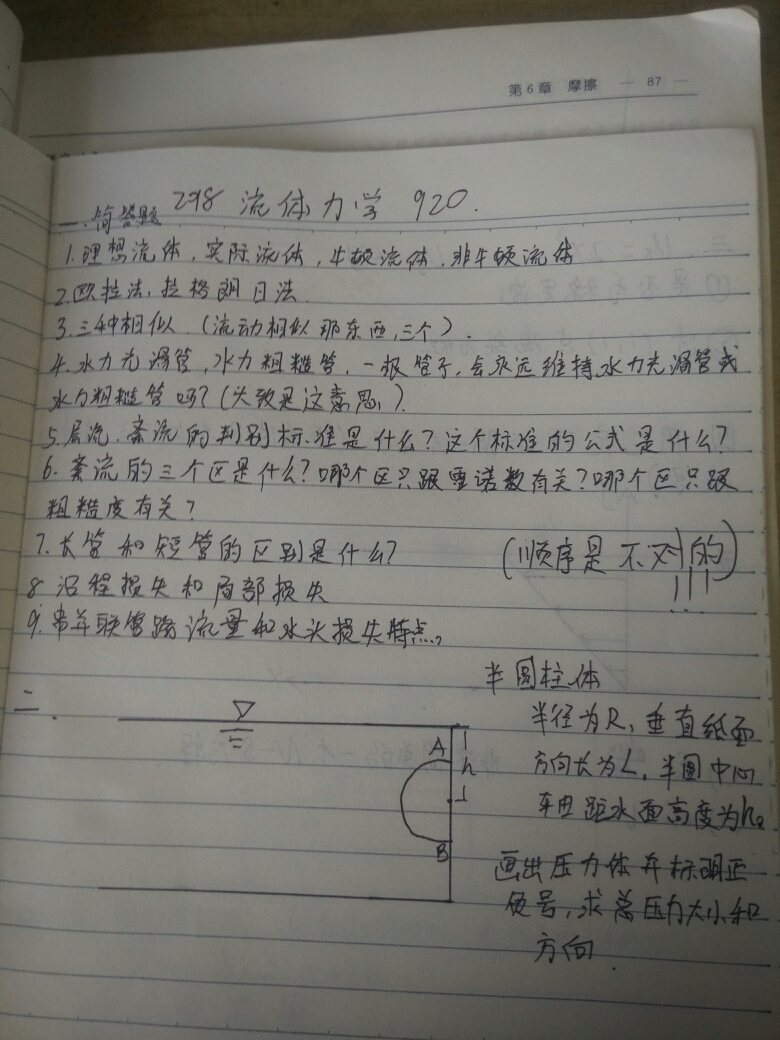 第6章 摩擦 — 87 —
一.简答题 298 流体力学 920.
1.理想流体,实际流体,牛顿流体,非牛顿流体
2.欧拉法,拉格朗日法.
3.三种相似.(流动相似那东西,三个).
4.水力光滑管,水力粗糙管,一根管子,会永远维持水力光滑管或
水力粗糙管吗?(大致是这意思).
5.层流.紊流的判别标准是什么?这个标准的公式是什么?
6.紊流的三个区是什么?哪个区只跟雷诺数有关?哪个区只跟
粗糙度有关?
7.长管和短管的区别是什么?
(顺序是不对的)
8 沿程损失和局部损失
9.串并联管路流量和水头损失特点。
二.
半圆柱体
半径为R,垂直纸面
方向长为L,半圆中心
轴距水面高度为h。
画出压力体并标明正
负号,求总压力大小和
方向.
A
h
B